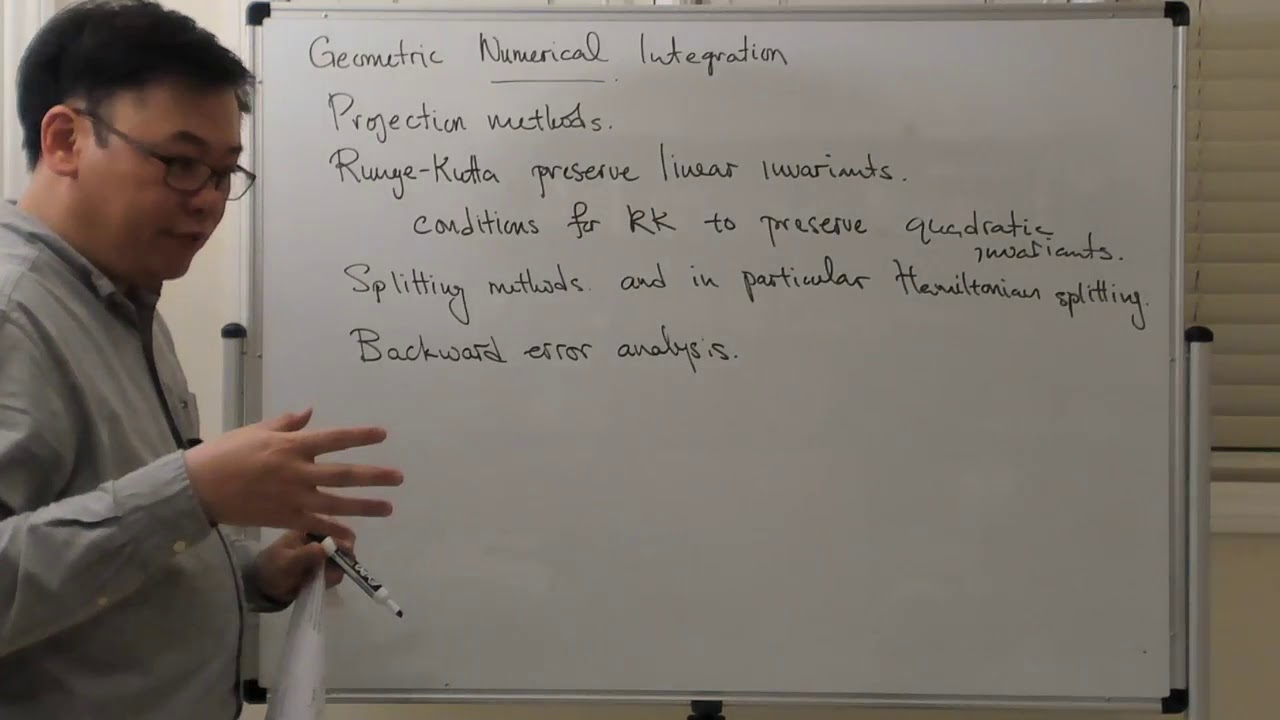 Geometric Numerical Integration
Projection methods.
Runge-Kutta preserve linear invariants.
conditions for RK to preserve quadratic
invariants.
Splitting methods. and in particular Hamiltonian splitting.
Backward error analysis.